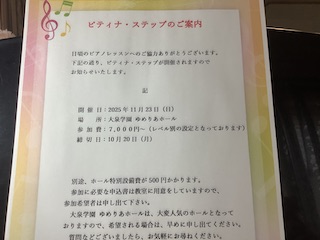 ピティナ・ステップのご案内
日頃のピアノレッスンへのご協力ありがとうございます。
下記の通り、ピティナ・ステップが開催されますので
お知らせいたします。
記
開 催 日：2025年11月23日（日）
場　　所：大泉学園 ゆめりあホール
参 加 費：7,000円～（レベル別の設定となっております）
締 切 日：10月20日（月）
別途、ホール特別設備費が500円かかります。
参加に必要な申込書は教室に用意をしていますので、
参加希望者は申し出て下さい。
大泉学園 ゆめりあホールは、大変人気のホールとなって
おりますので、希望される場合は、早めに申し出てください。
質問などございましたら、お気軽にお尋ねください。